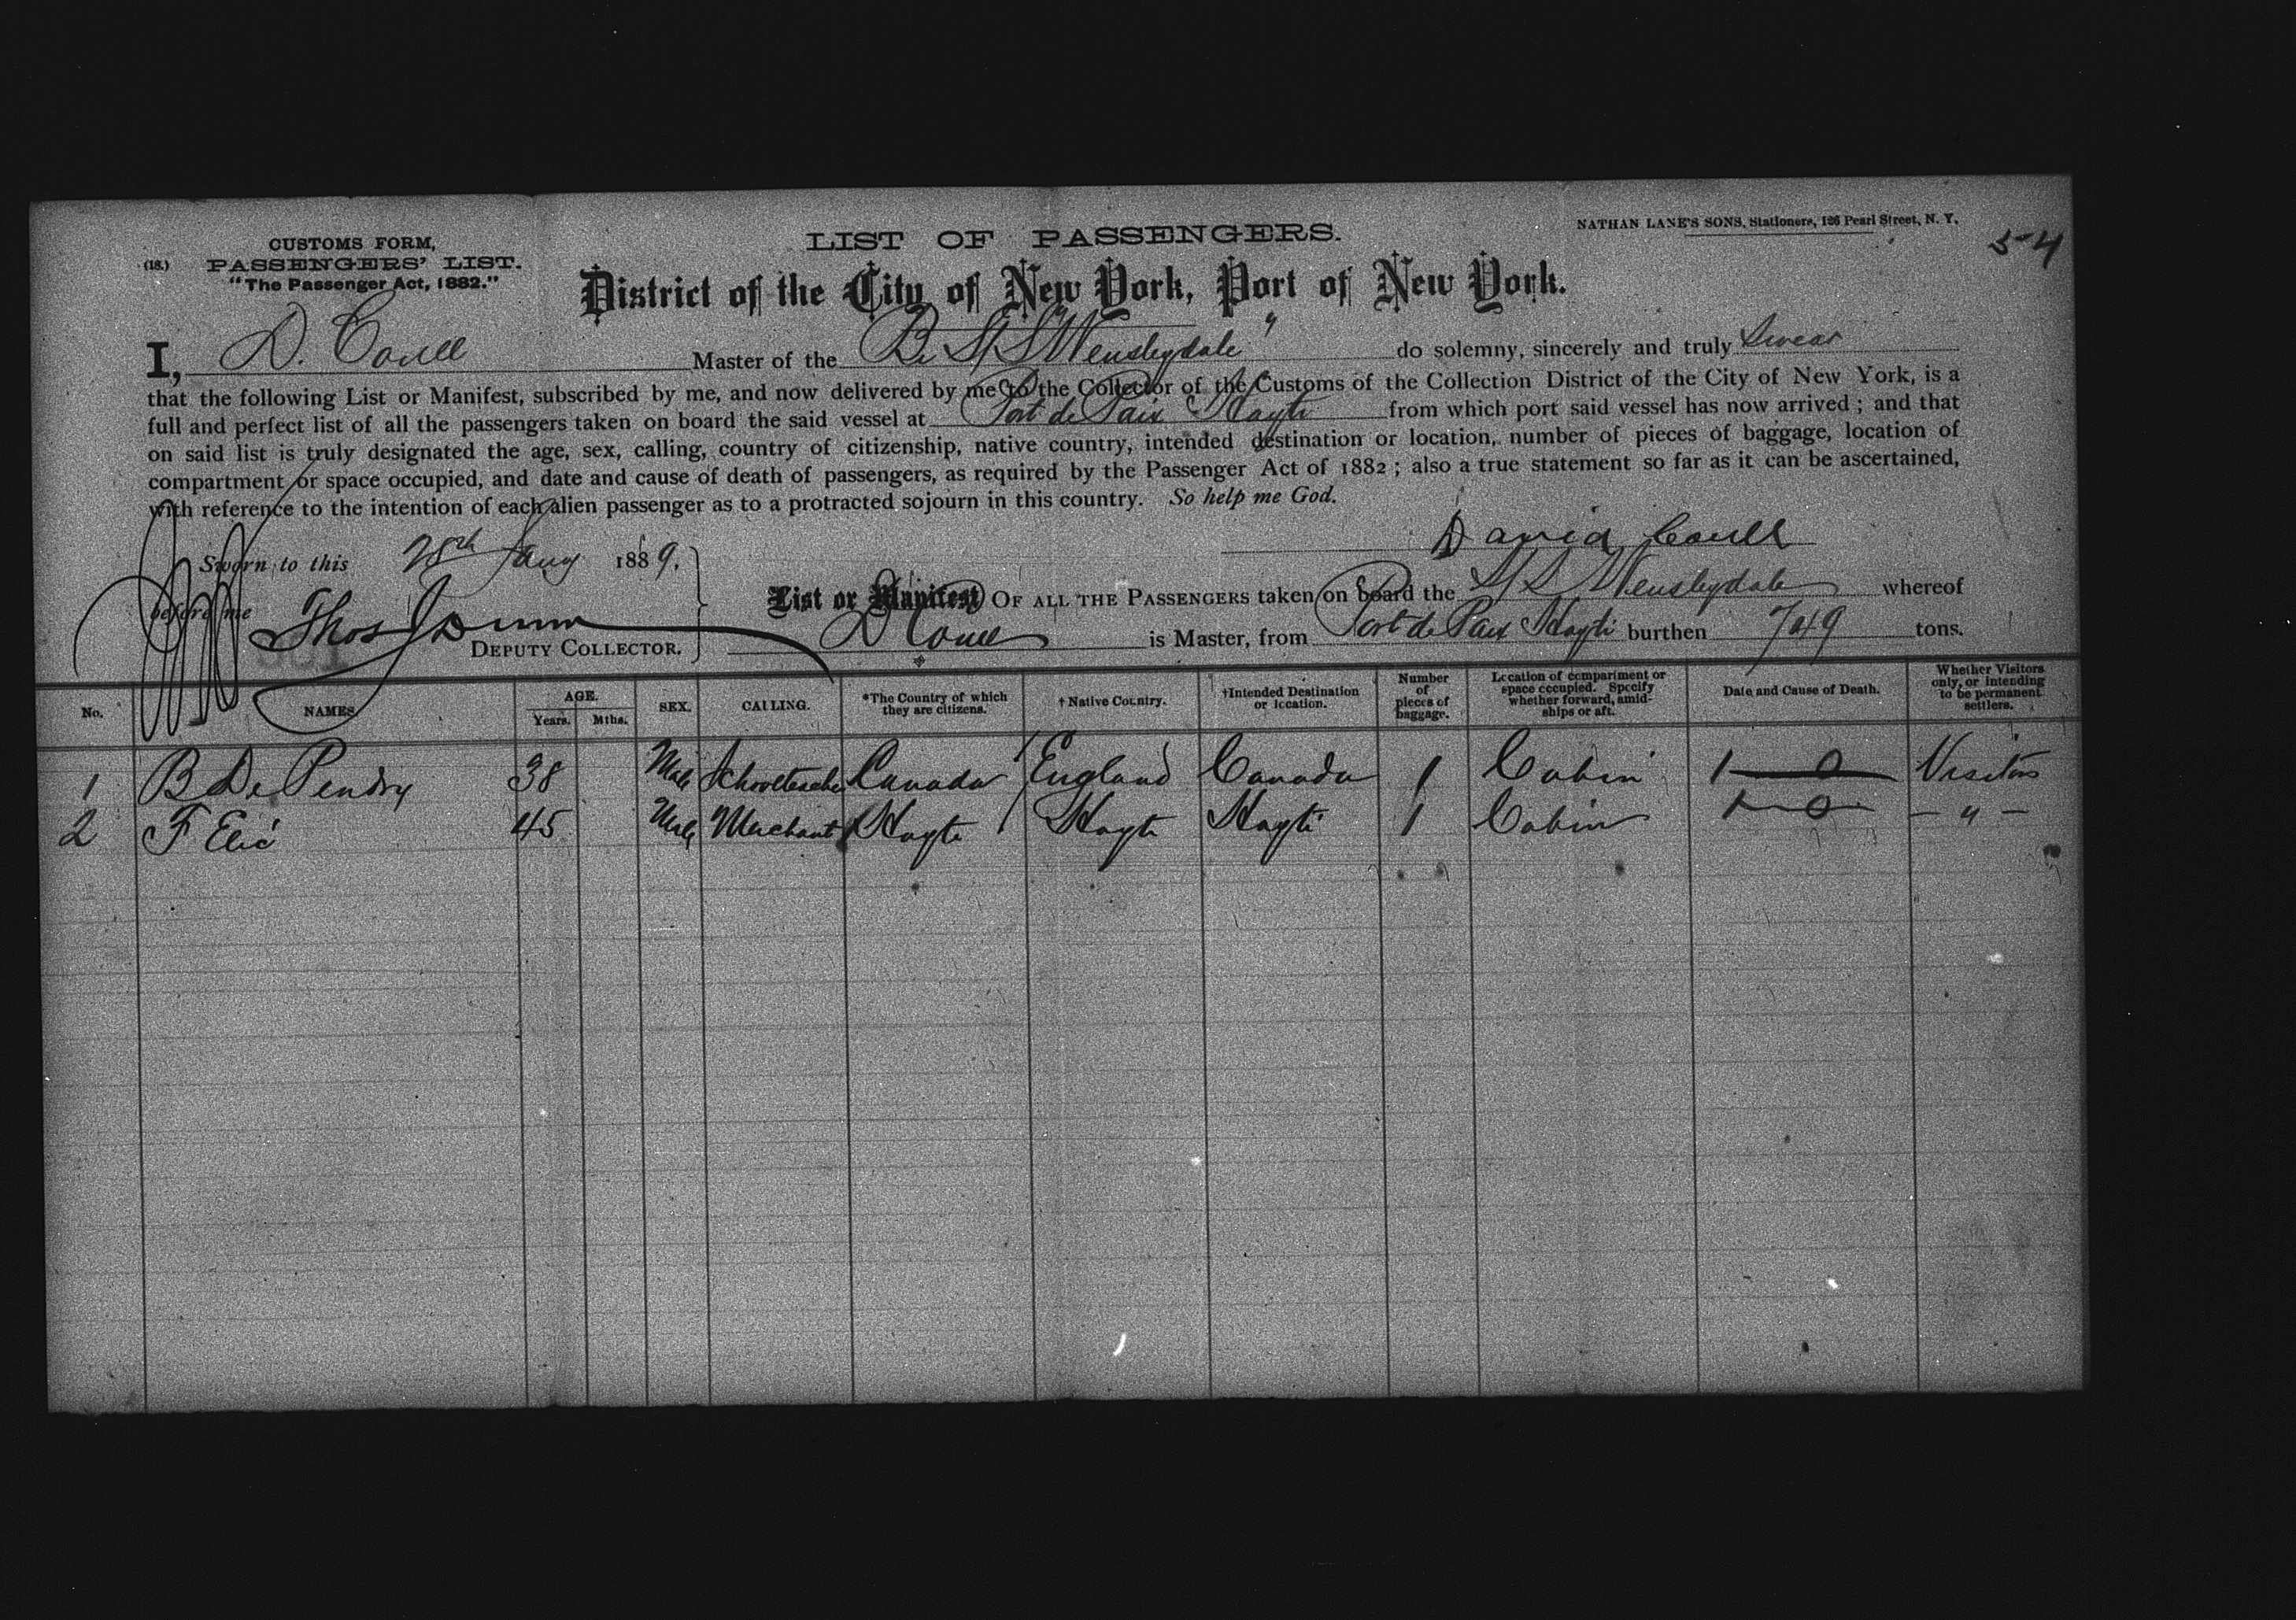 NATHAN LANE'S SONS, Stationers, 126 Pearl Street, N. Y.
54
CUSTOMS FORM,
(18.) PASSENGERS' LIST.
"The Passenger Act, 1882."
LIST OF PASSENGERS.
District of the City of New York, Port of New York.
I, D. Coull Master of the Br S/S "Wensleydale" do solemny, sincerely and truly Swear
that the following List or Manifest, subscribed by me, and now delivered by me to the Collector of the Customs of the Collection District of the City of New York, is a
full and perfect list of all the passengers taken on board the said vessel at Port de Paix Hayti from which port said vessel has now arrived; and that
on said list is truly designated the age, sex, calling, country of citizenship, native country, intended destination or location, number of pieces of baggage, location of
compartment or space occupied, and date and cause of death of passengers, as required by the Passenger Act of 1882; also a true statement so far as it can be ascertained,
with reference to the intention of each alien passenger as to a protracted sojourn in this country. So help me God.
David Coull
Sworn to this 28th 1889.
before me Thos J Dunn
DEPUTY COLLECTOR.
List or Manifest OF ALL THE PASSENGERS taken on board the S/S Wensleydale whereof
D Coull is Master, from Port de Paix Hayti burthen 749 tons.
No. NAMES AGE. Years. Mths. SEX. CALLING. *The Country of which they are citizens. †Native Country. †Intended Destination or location. Number of pieces of baggage. Location of compartment or space occupied. Specify whether forward, amidships or aft. Date and Cause of Death. Whether Visitors only, or intending to be permanent settlers.
1 B De Pendry 38 Male Schoolteacher Canada England Canada 1 Cabin Visitors
2 F Elié 45 Male Merchant Hayti Hayti Hayti 1 Cabin — " —